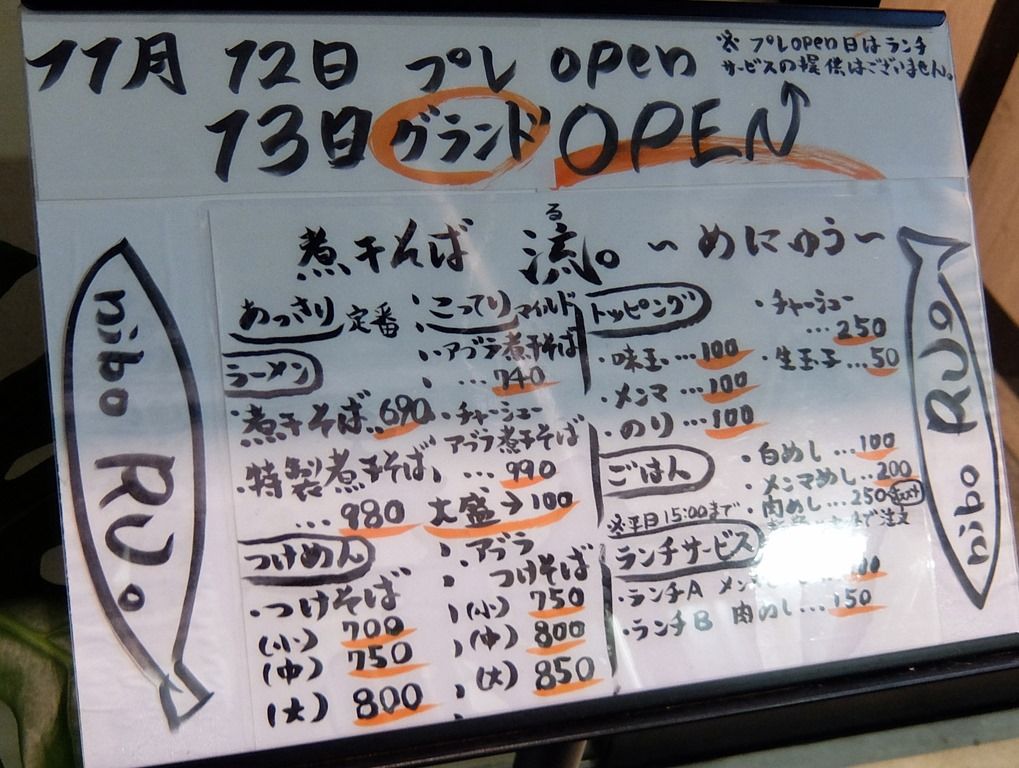 11月 12日 プレ open
※プレopen日はランチ
サービスの提供はございません。
13日 グランド OPEN
る
煮干そば 流。 ~めにゅう~
nibo RU。
あっさり 定番
ラーメン
・煮干そば…690
・特製煮干そば
…980
つけめん
・つけそば
(小) 700
(中) 750
(大) 800
こってり マイルド
・アブラ煮干そば
…740
・チャーシュー
アブラ煮干そば
…990
大盛→100
・アブラ
つけそば
(小) 750
(中) 800
(大) 850
トッピング
・チャーシュー
…250
・味玉…100
・生玉子…50
・メンマ…100
・のり…100
ごはん
・白めし…100
・メンマめし…200
・肉めし…250
で注
※平日15:00まで
ランチサービス
・ランチA メン
・ランチB 肉めし…150
nibo RU。